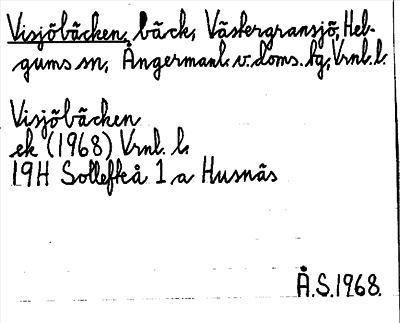 Visjöbäcken, bäck, Västergransjö, Hel-
gums sn, Ångermanl. v. doms. hg, Vrnl. l.
Visjöbäcken
ek (1968) Vrnl. l.
19H Sollefteå 1 a Husnäs
Å.S.1968.